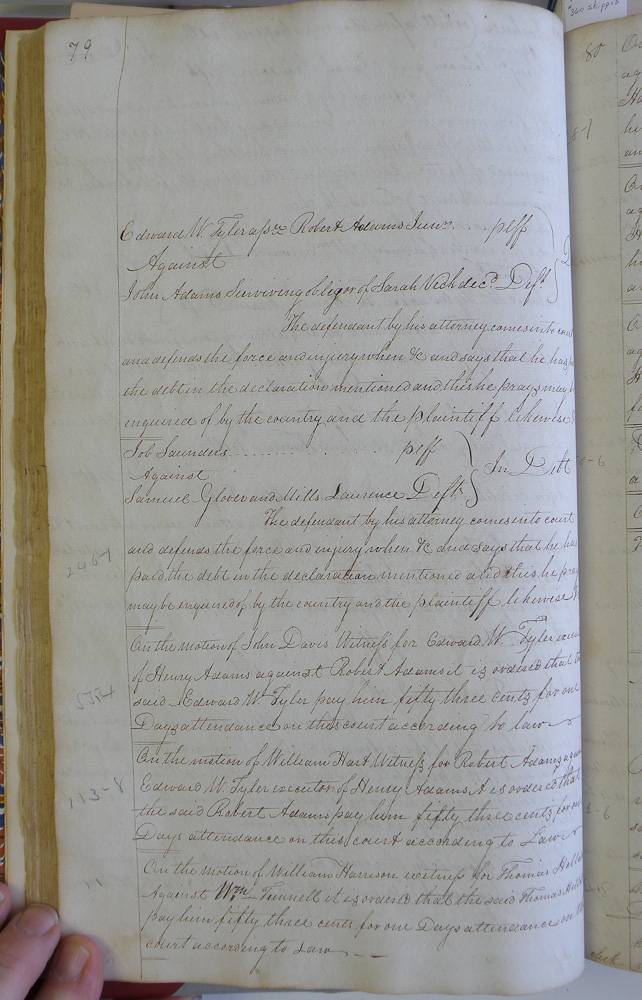 79
Edward W. Tyler assee Robert Adams Junr. .... plff
Against
John Adams Surviving obligor of Sarah Vech decd. Deft
The defendant by his attorney comes into court
and defends the force and injury when &c and says that he has
the debt in the declaration mentioned and this he prays may
enquired of by the country and the plaintiff likewise
Job Saunders ............ plff
Against
In Debt
Samuel Glover and Mills Laurence Defts
The defendant by his attorney comes into court
and defends the force and injury when &c and says that he has
paid the debt in the declaration mentioned and this he pray
may be enquired of by the country and the plaintiff likewise
On the motion of John Davis Witness for Edward W. Tyler
of Henry Adams against Robert Adams it is ordered that
said Edward W. Tyler pay him fifty three cents for one
Days attendance on this court according to law
On the motion of William Hart Witness for Robert Adams
Edward W. Tyler executor of Henry Adams it is ordered that
the said Robert Adams pay him fifty three cents for one
Days attendance on this court according to Law
On the motion of William Harrison witness for Thomas
Against Wm. Funnell it is ordered that the said Thomas
pay him fifty three cents for one Days attendance on
court according to Law
80